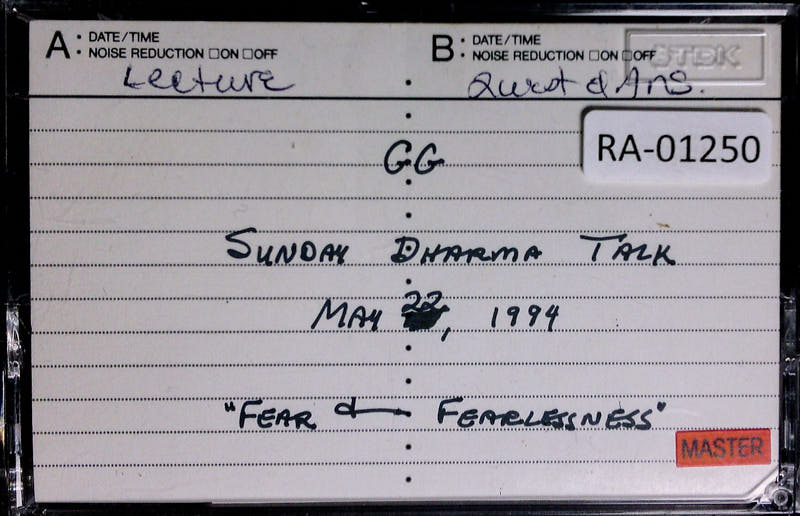 A • DATE/TIME
• NOISE REDUCTION □ON □OFF
Lecture
B • DATE/TIME
• NOISE REDUCTION □ON □OFF
TDK
Quest & Ans.
GG
RA-01250
SUNDAY DHARMA TALK
MAY 22, 1994
"FEAR & FEARLESSNESS"
MASTER